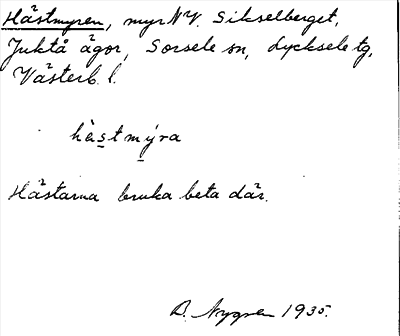 Hästmyren, myr NV. Sikselberget,
Juktå ägor, Sorsele sn, Lycksele tg,
Västerb. l.
hàs̲tm̲ýra
Hästarna bruka beta där.
B. Nygren 1935.